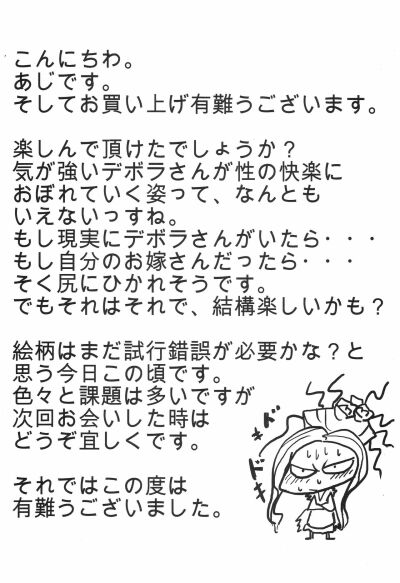 こんにちわ。
あじです。
そしてお買い上げ有難うございます。
楽しんで頂けたでしょうか？
気が強いデボラさんが性の快楽に
おぼれていく姿って、なんとも
いえないっすね。
もし現実にデボラさんがいたら・・・
もし自分のお嫁さんだったら・・・
そく尻にひかれそうです。
でもそれはそれで、結構楽しいかも？
絵柄はまだ試行錯誤が必要かな？と
思う今日この頃です。
色々と課題は多いですが
次回お会いした時は
どうぞ宜しくです。
それではこの度は
有難うございました。
ドキ
ドキ